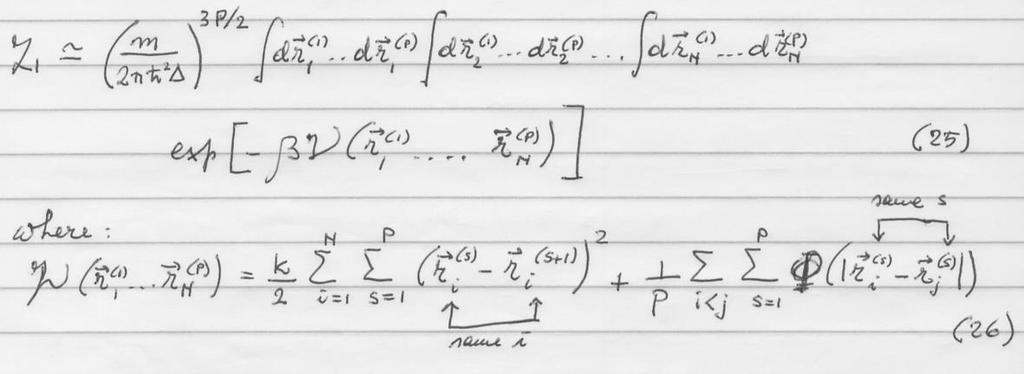 Z₁ ≃ (m / 2πħ²Δ)^{3P/2} ∫dr⃗₁⁽¹⁾...dr⃗₁⁽ᴾ⁾ ∫dr⃗₂⁽¹⁾...dr⃗₂⁽ᴾ⁾... ∫dr⃗_N⁽¹⁾...dr⃗_N⁽ᴾ⁾
exp[-β𝒱(r⃗₁⁽¹⁾ ..... r⃗_N⁽ᴾ⁾)] (25)
where: same s
𝒱(r⃗₁⁽¹⁾...r⃗_N⁽ᴾ⁾) = k/2 Σ_{i=1}^{N} Σ_{s=1}^{P} (r⃗_i^{(s)} - r⃗_i^{(s+1)})² + 1/P Σ_{i<j} Σ_{s=1}^{P} Φ(|r⃗_i^{(s)} - r⃗_j^{(s)}|)
same i (26)